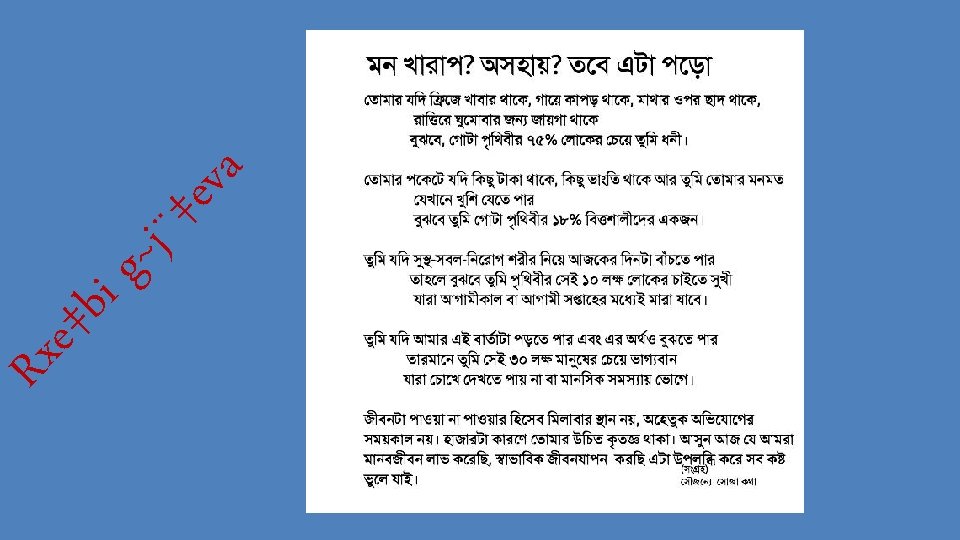 Rxe‡bi g~j¨‡eva
মন খারাপ? অসহায়? তবে এটা পড়ো
তোমার যদি ফ্রিজে খাবার থাকে, গায়ে কাপড় থাকে, মাথার ওপর ছাদ থাকে,
রাত্তিরে ঘুমোবার জন্য জায়গা থাকে
বুঝবে, গোটা পৃথিবীর ৭৫% লোকের চেয়ে তুমি ধনী।
তোমার পকেটে যদি কিছু টাকা থাকে, কিছু ভাংতি থাকে আর তুমি তোমার মনমত
যেখানে খুশি যেতে পার
বুঝবে তুমি গোটা পৃথিবীর ১৮% বিত্তশালীদের একজন।
তুমি যদি সুস্থ-সবল-নিরোগ শরীর নিয়ে আজকের দিনটা বাঁচতে পার
তাহলে বুঝবে তুমি পৃথিবীর সেই ১০ লক্ষ লোকের চাইতে সুখী
যারা আগামীকাল বা আগামী সপ্তাহের মধ্যেই মারা যাবে।
তুমি যদি আমার এই বার্তাটা পড়তে পার এবং এর অর্থও বুঝতে পার
তারমানে তুমি সেই ৩০ লক্ষ মানুষের চেয়ে ভাগ্যবান
যারা চোখে দেখতে পায় না বা মানসিক সমস্যায় ভোগে।
জীবনটা পাওয়া না পাওয়ার হিসেব মিলাবার স্থান নয়, অহেতুক অভিযোগের
সময়কাল নয়। হাজারটা কারণে তোমার উচিত কৃতজ্ঞ থাকা। আসুন আজ যে আমরা
মানবজীবন লাভ করেছি, স্বাভাবিক জীবনযাপন করছি এটা উপলব্ধি করে সব কষ্ট
ভুলে যাই।
(সংগ্রহ)
সৌজন্যে সোজা কথা